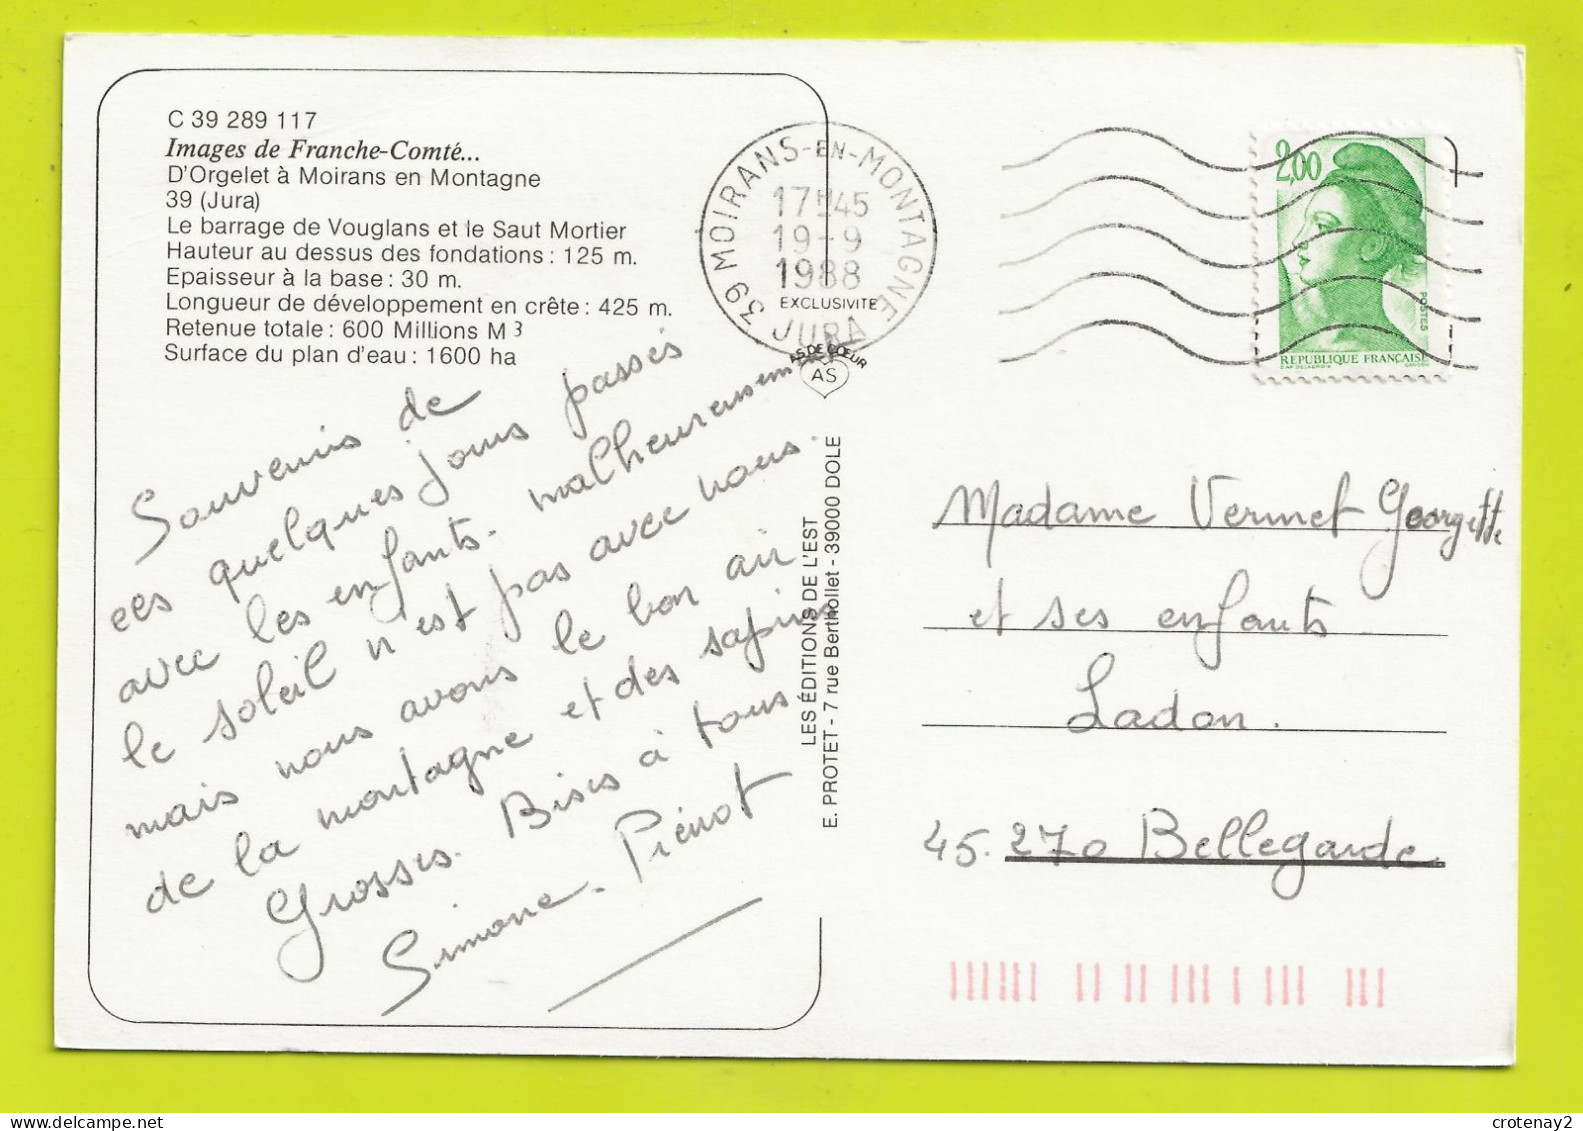 C 39 289 117
Images de Franche-Comté...
D'Orgelet à Moirans en Montagne
39 (Jura)
Le barrage de Vouglans et le Saut Mortier
Hauteur au dessus des fondations : 125 m.
Epaisseur à la base : 30 m.
Longueur de développement en crête : 425 m.
Retenue totale : 600 Millions M³
Surface du plan d'eau : 1600 ha
Souvenirs de
ces quelques jours passés
avec les enfants. malheureusement
le soleil n'est pas avec nous.
mais nous avons le bon air
de la montagne et des sapins
Grosses Bises à tous
Simone - Piérrot
39 MOIRANS-EN-MONTAGNE
17H45
19-9
1988
JURA
EXCLUSIVITE
AS DE CŒUR
AS
LES ÉDITIONS DE L'EST
E. PROTET - 7 rue Berthollet - 39000 DOLE
2,00
POSTES
REPUBLIQUE FRANÇAISE
D'AP. DELACROIX GANDON
Madame Vermet Georgette
et ses enfants
Ladon.
45.270 Bellegarde
crotenay2